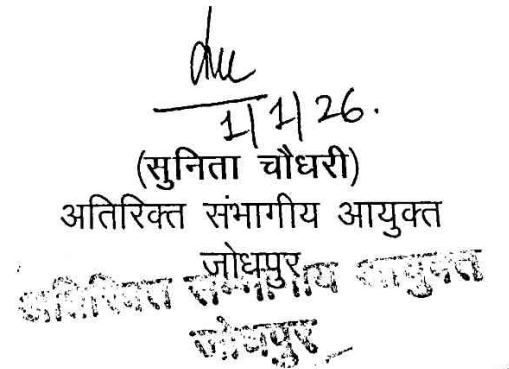 1/1/26.
(सुनिता चौधरी)
अतिरिक्त संभागीय आयुक्त
जोधपुर
अतिरिक्त सम्भागीय आयुक्त
जोधपुर